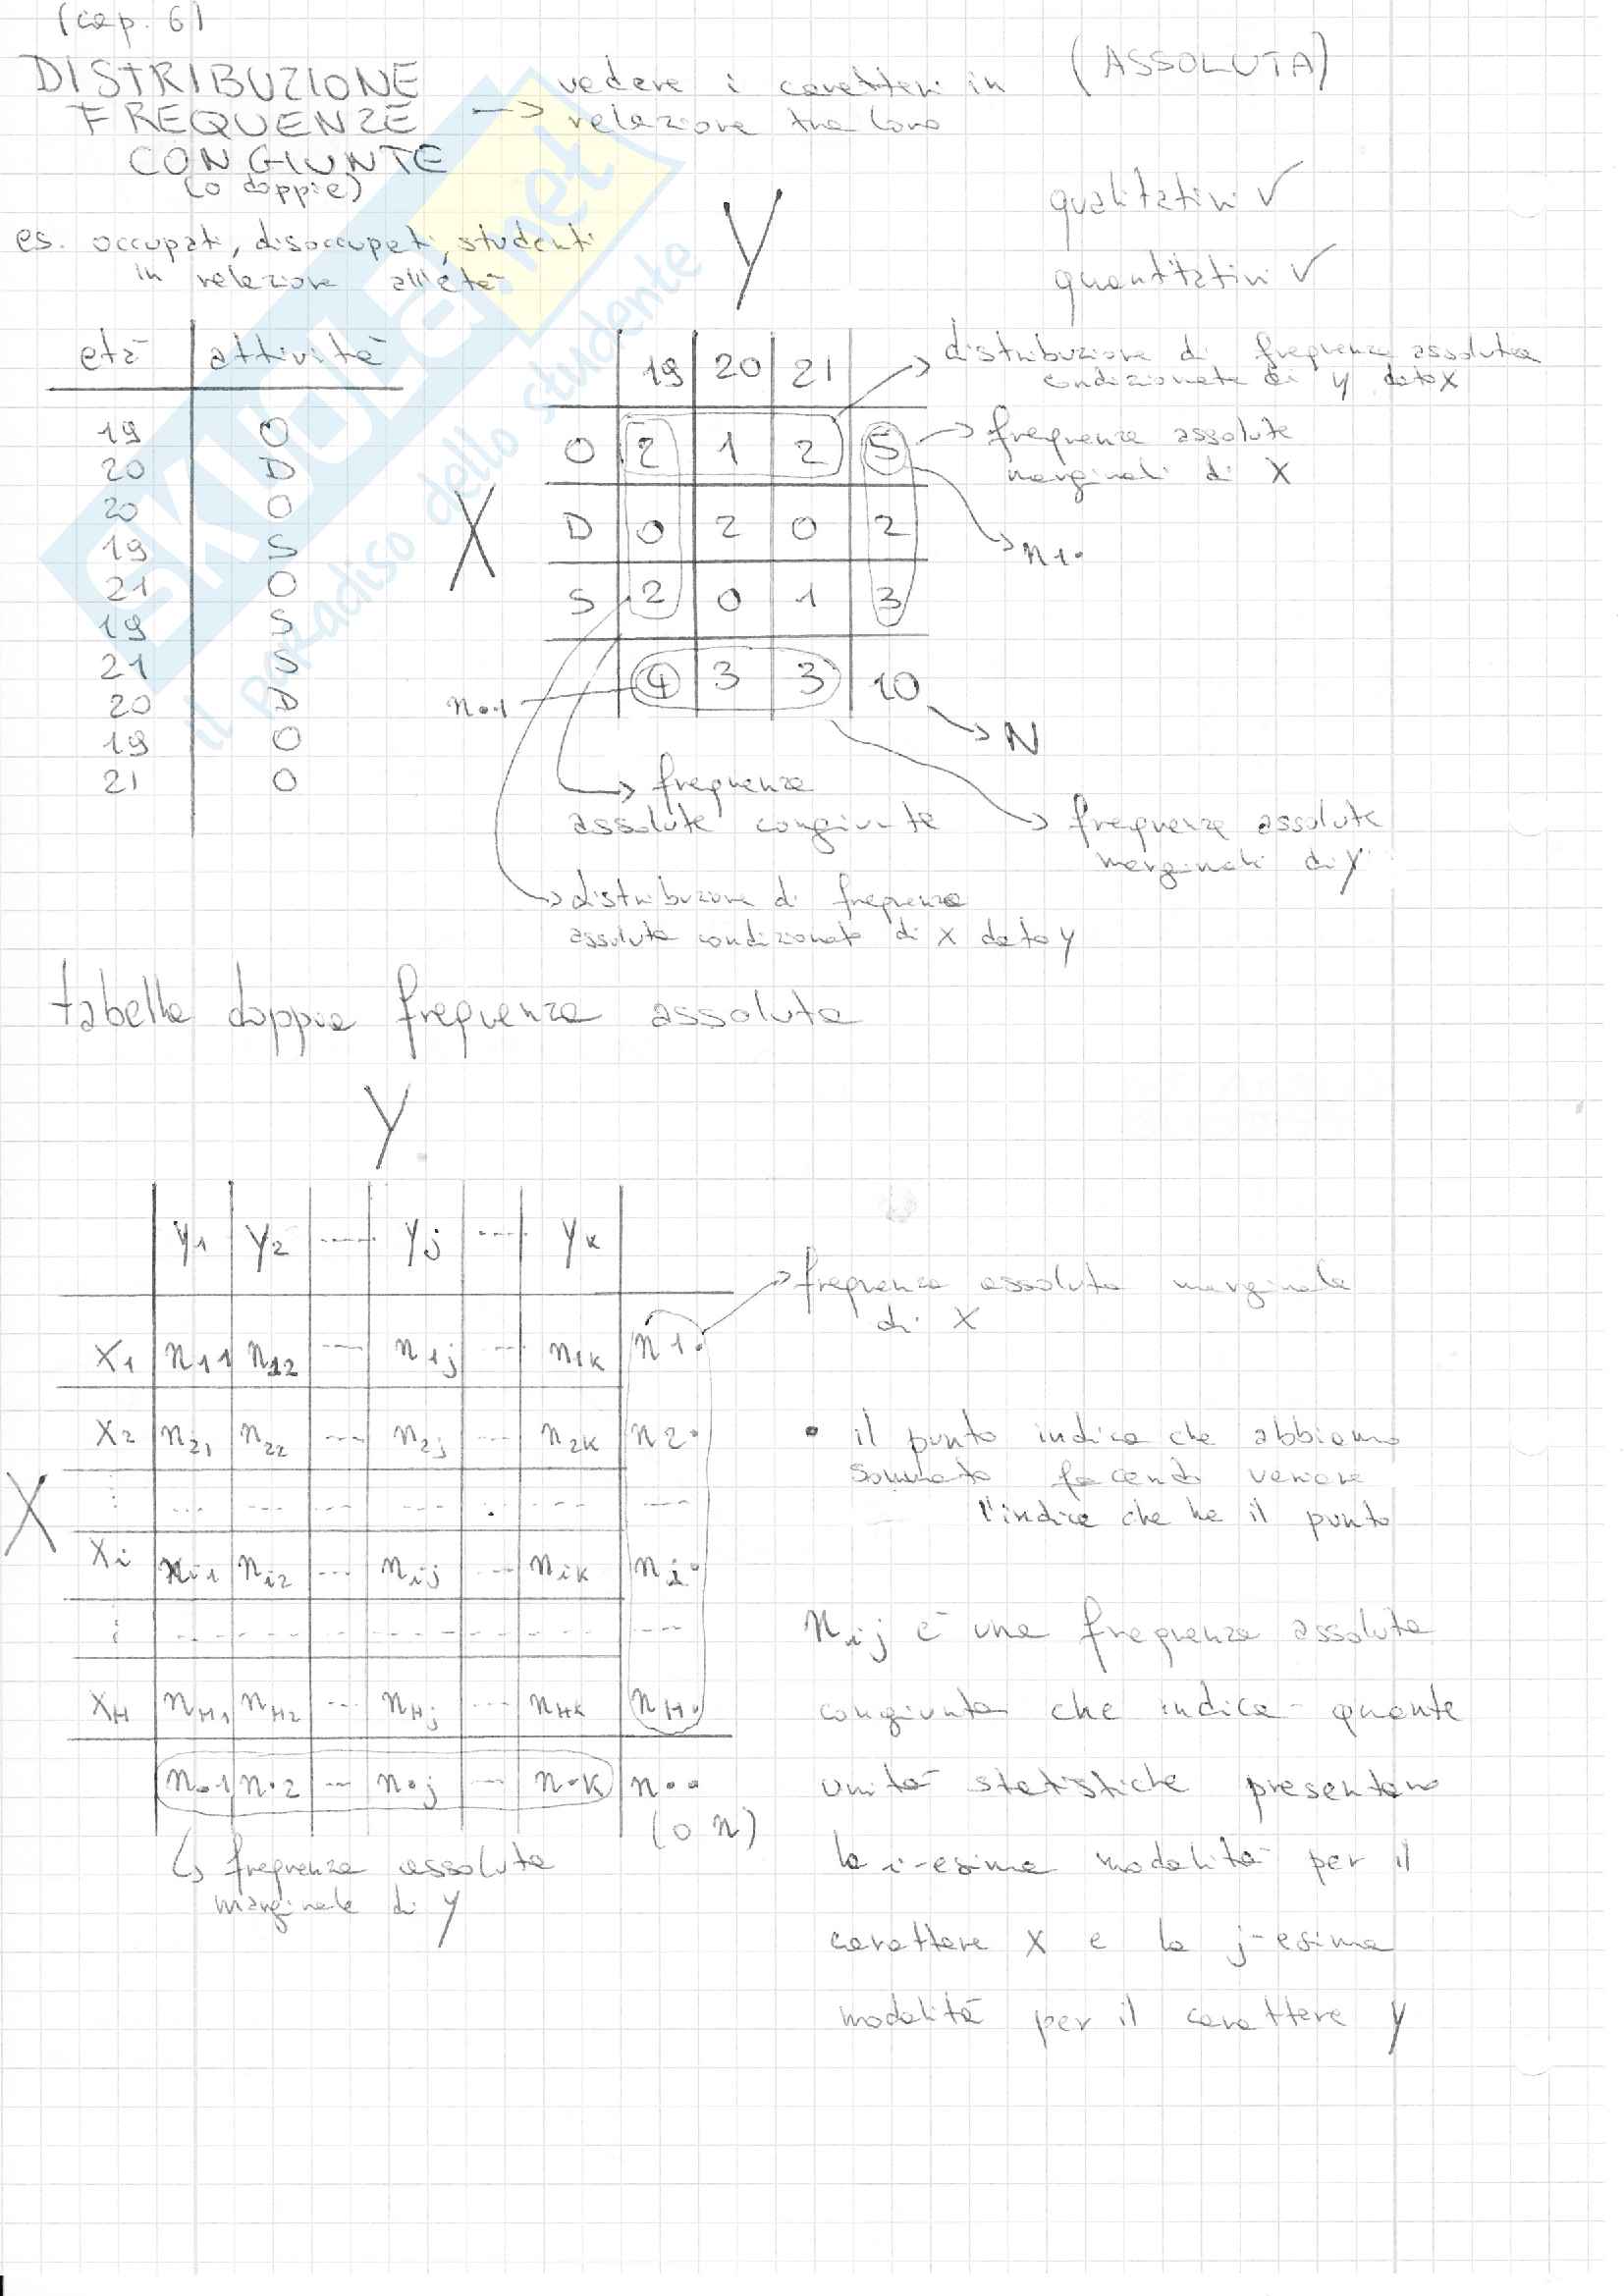 (cap. 6)
DISTRIBUZIONE
FREQUENZE
CONGIUNTE
(o doppie)
→ vedere i caratteri in
relazione tra loro
(ASSOLUTA)
qualitativi ✓
quantitativi ✓
es. occupati, disoccupati, studenti
in relazione all'età
età attività
19 O
20 D
20 O
19 S
21 O
19 S
21 S
20 D
19 O
21 O
Y
19 20 21
X
O 2 1 2 5
D 0 2 0 2
S 2 0 1 3
4 3 3 10
distribuzione di frequenza assoluta
condizionata di y dato x
frequenze assolute
marginali di X
n1•
n•1
N
frequenze
assolute congiunte
frequenze assolute
marginali di Y
distribuzione di frequenza
assoluta condizionata di x dato y
tabella doppia frequenza assoluta
Y
y1 y2 ---- yj ---- yk
X
x1 n11 n12 --- n1j --- n1k n1•
x2 n21 n22 --- n2j --- n2k n2•
⋮ --- --- --- --- --- --- ---
xi ni1 ni2 --- nij --- nik ni•
⋮ --- --- --- --- --- --- ---
xH nH1 nH2 --- nHj --- nHk nH•
n•1 n•2 --- n•j --- n•k n••
(o n)
frequenza assoluta
marginale di y
frequenza assoluta marginale
di X
• il punto indica che abbiamo
sommato facendo variare
l'indice che ha il punto
nij è una frequenza assoluta
congiunta che indica quante
unità statistiche presentano
la i-esima modalità per il
carattere X e la j-esima
modalità per il carattere y
SKUOLA.net
il paradiso dello studente